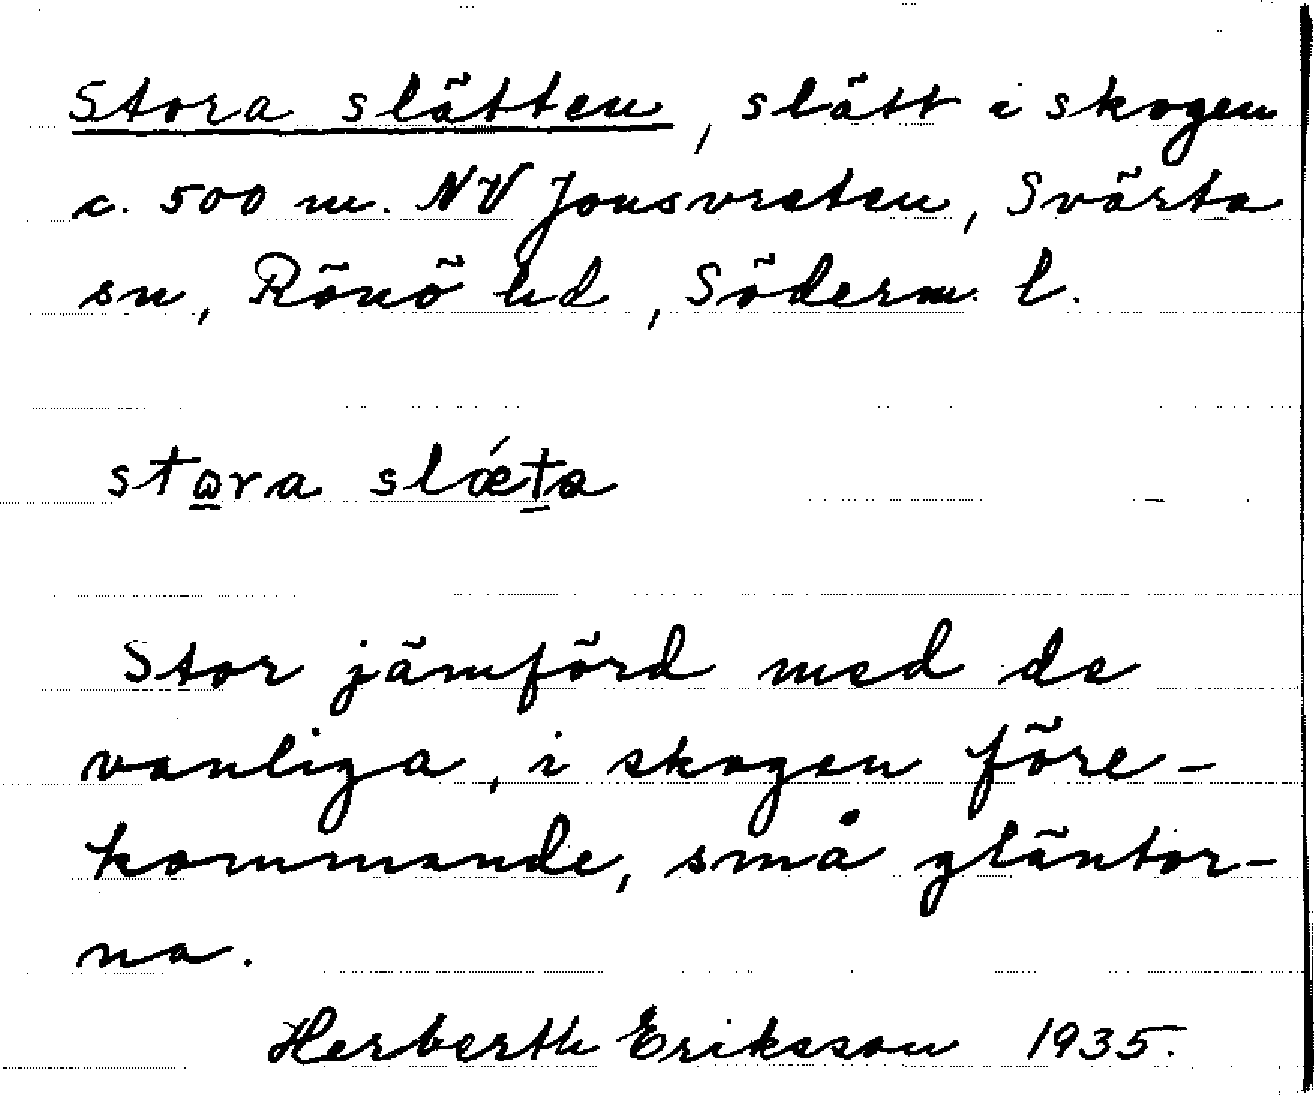 Stora slätten, slätt i skogen
c. 500 m. NV Jonsvreten, Svärta
sn, Rönö hd, Söderm. l.
stω̲ra slǽt̲a
Stor jämförd med de
vanliga, i skogen före-
kommande, små gläntor-
na.
Herberth Eriksson 1935.